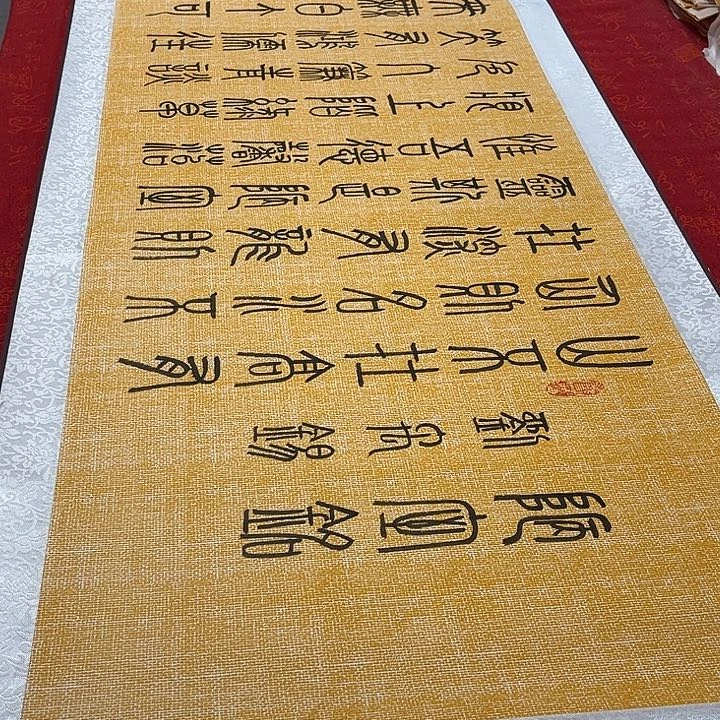 陋室銘
劉禹錫
山不在高有
仙則名水不
在深有龍則
靈斯是陋室
惟吾德馨苔
痕上階綠草
色入簾青談
笑有鴻儒往
來無白丁可